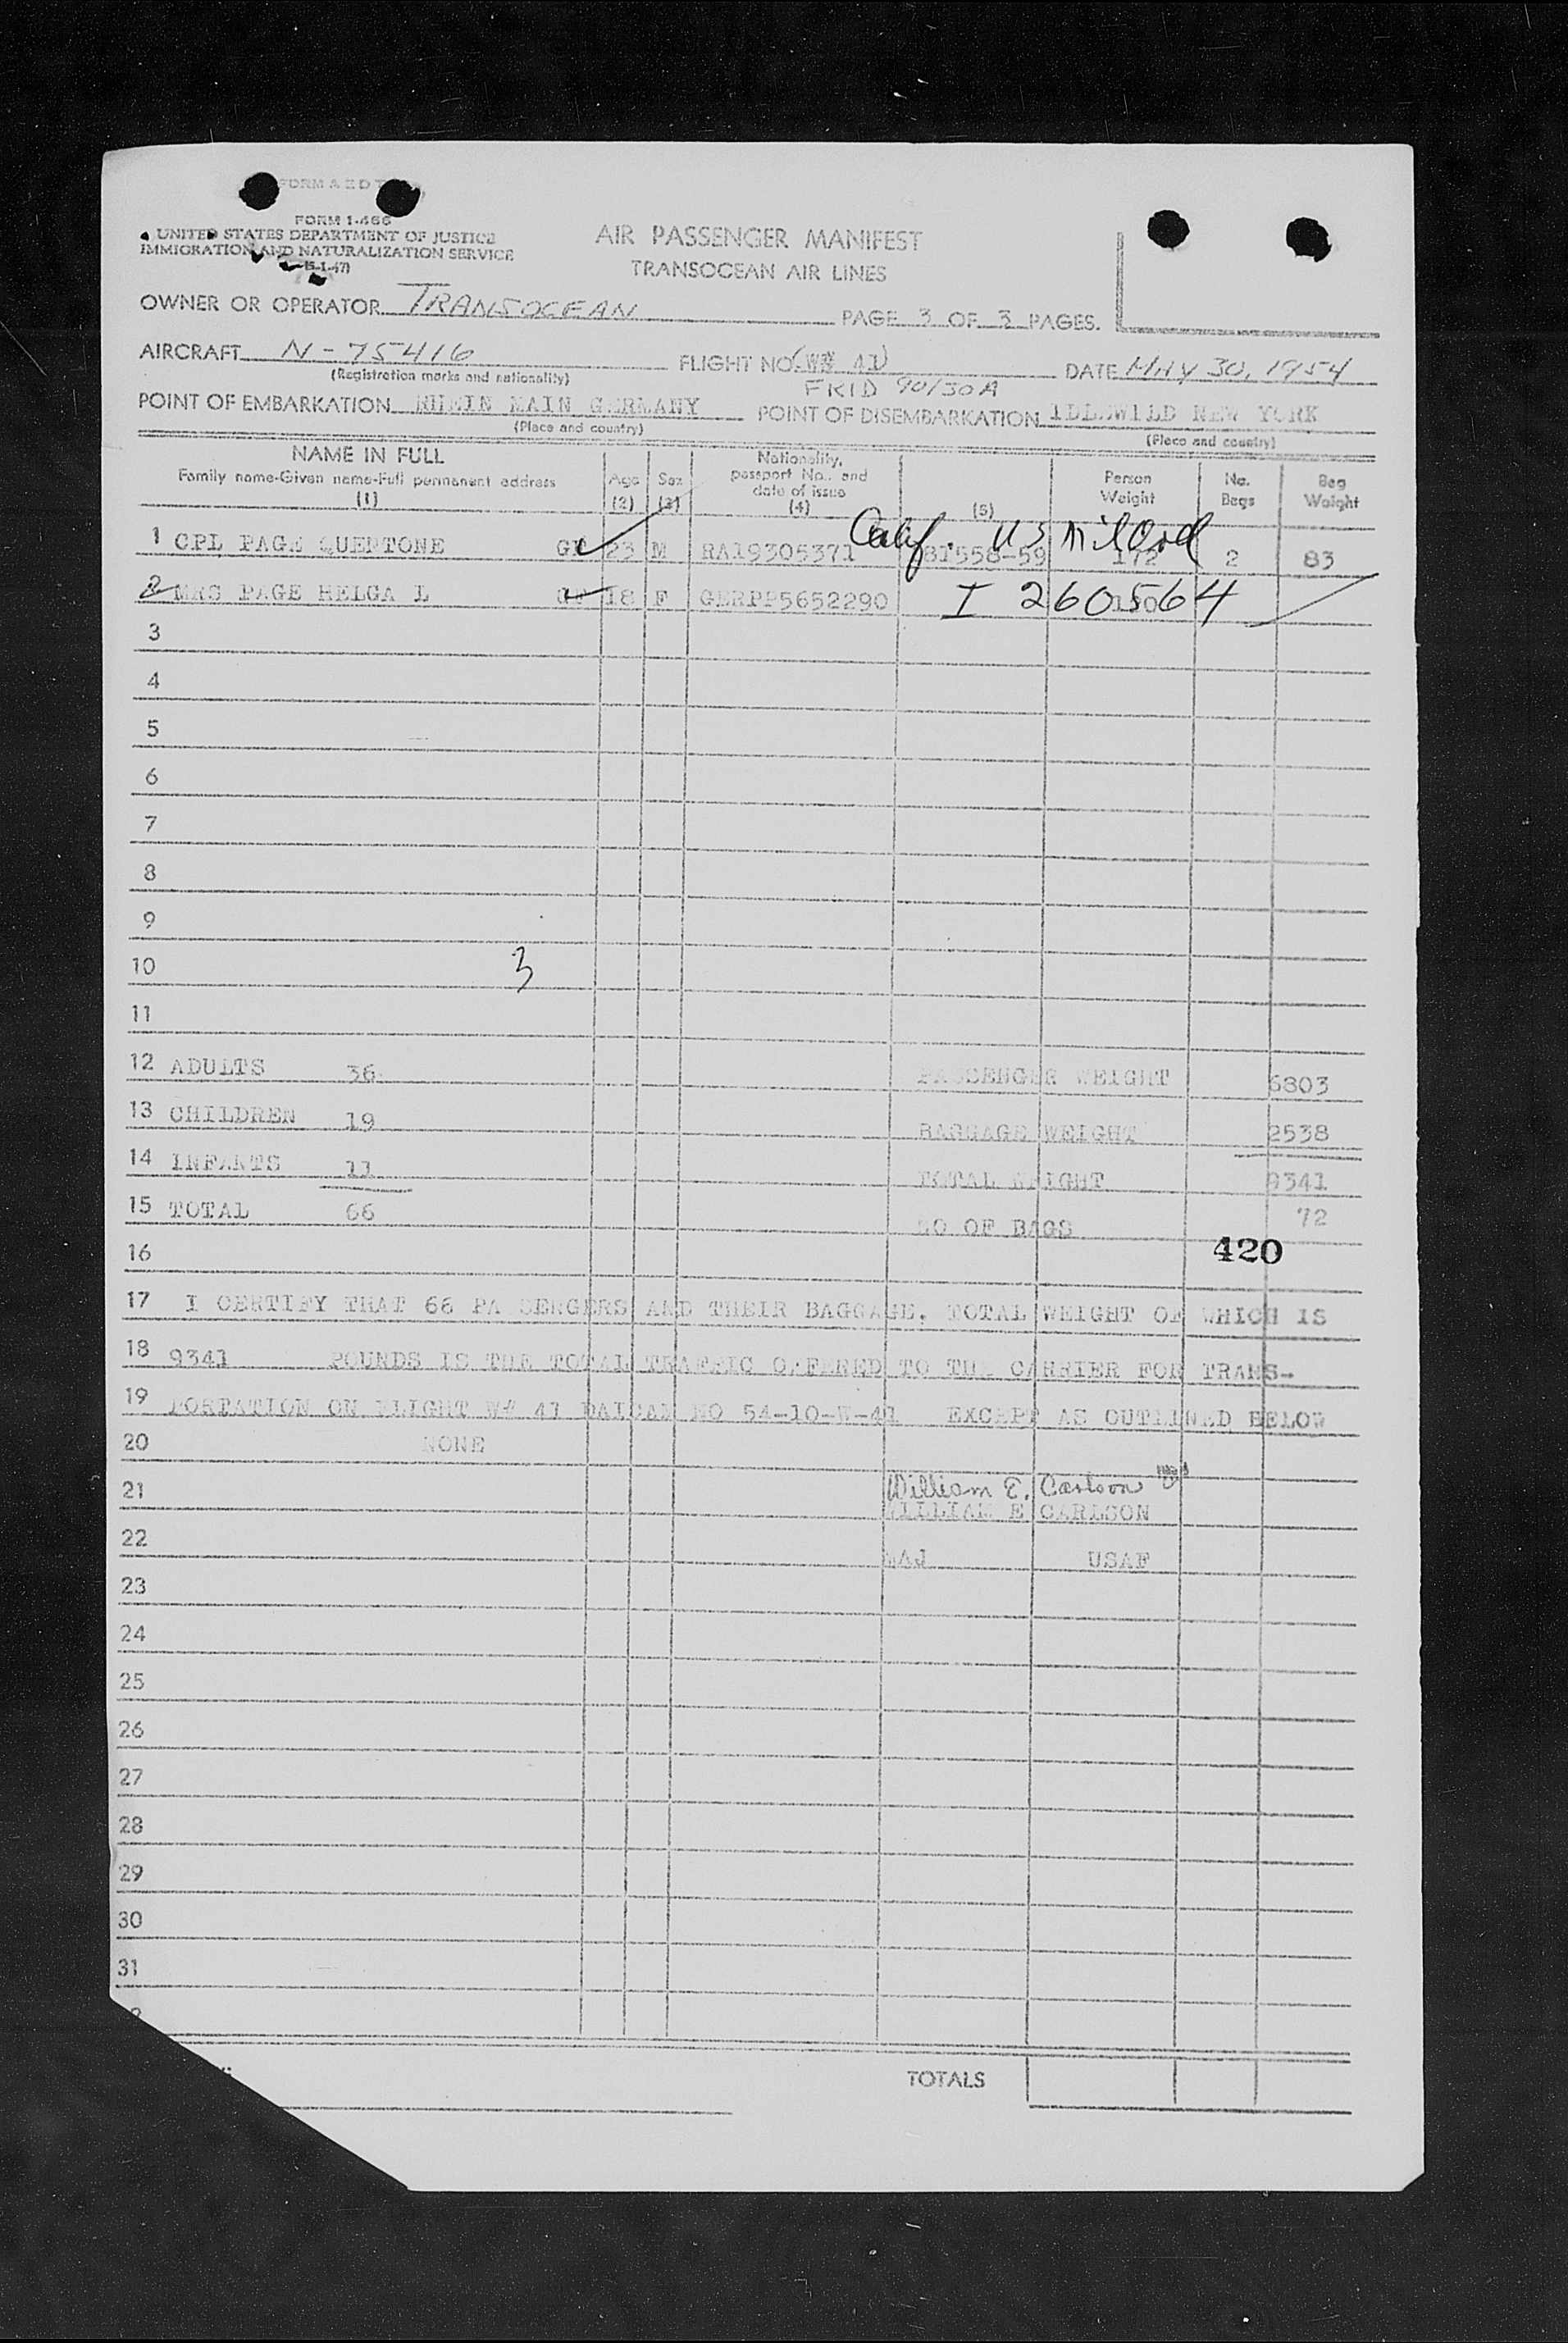 FORM A E D T
FORM 1-466
UNITED STATES DEPARTMENT OF JUSTICE
IMMIGRATION AND NATURALIZATION SERVICE
(5-1-47)
AIR PASSENGER MANIFEST
TRANSOCEAN AIR LINES
OWNER OR OPERATOR TRANSOCEAN PAGE 3 OF 3 PAGES.
AIRCRAFT N-75416 FLIGHT NO (W# 41) DATE MAY 30, 1954
(Registration marks and nationality) FKID 90/30A
POINT OF EMBARKATION RHEIN MAIN GERMANY POINT OF DISEMBARKATION IDLEWILD NEW YORK
(Place and country) (Place and country)
NAME IN FULL
Family name-Given name-Full permanent address
(1)
Age
(2)
Sex
(3)
Nationality,
passport No., and
date of issue
(4)
(5)
Person
Weight
No.
Bags
Bag
Weight
Calif. US Mil Ord
1 CPL PAGE QUENTONE 23 M RA19305371 81558-59 172 2 83
2 MRS PAGE HELGA L 18 F GERPP5652290 I 260564
3
4
5
6
7
8
9
10 3
11
12 ADULTS 36 PASSENGER WEIGHT 6803
13 CHILDREN 19 BAGGAGE WEIGHT 2538
14 INFANTS 11 TOTAL WEIGHT 9341
15 TOTAL 66 NO OF BAGS 72
16 420
17 I CERTIFY THAT 66 PA SENGERS AND THEIR BAGGAGE, TOTAL WEIGHT OF WHICH IS
18 9341 POUNDS IS THE TOTAL TRAFFIC OFFERED TO THE CARRIER FOR TRANS-
19 PORTATION ON FLIGHT W# 41 DAICAM NO 54-10-W-41 EXCEPT AS OUTLINED BELOW
20 NONE
21 William E. Carlson
WILLIAM E CARLSON
22 MAJ USAF
23
24
25
26
27
28
29
30
31
TOTALS